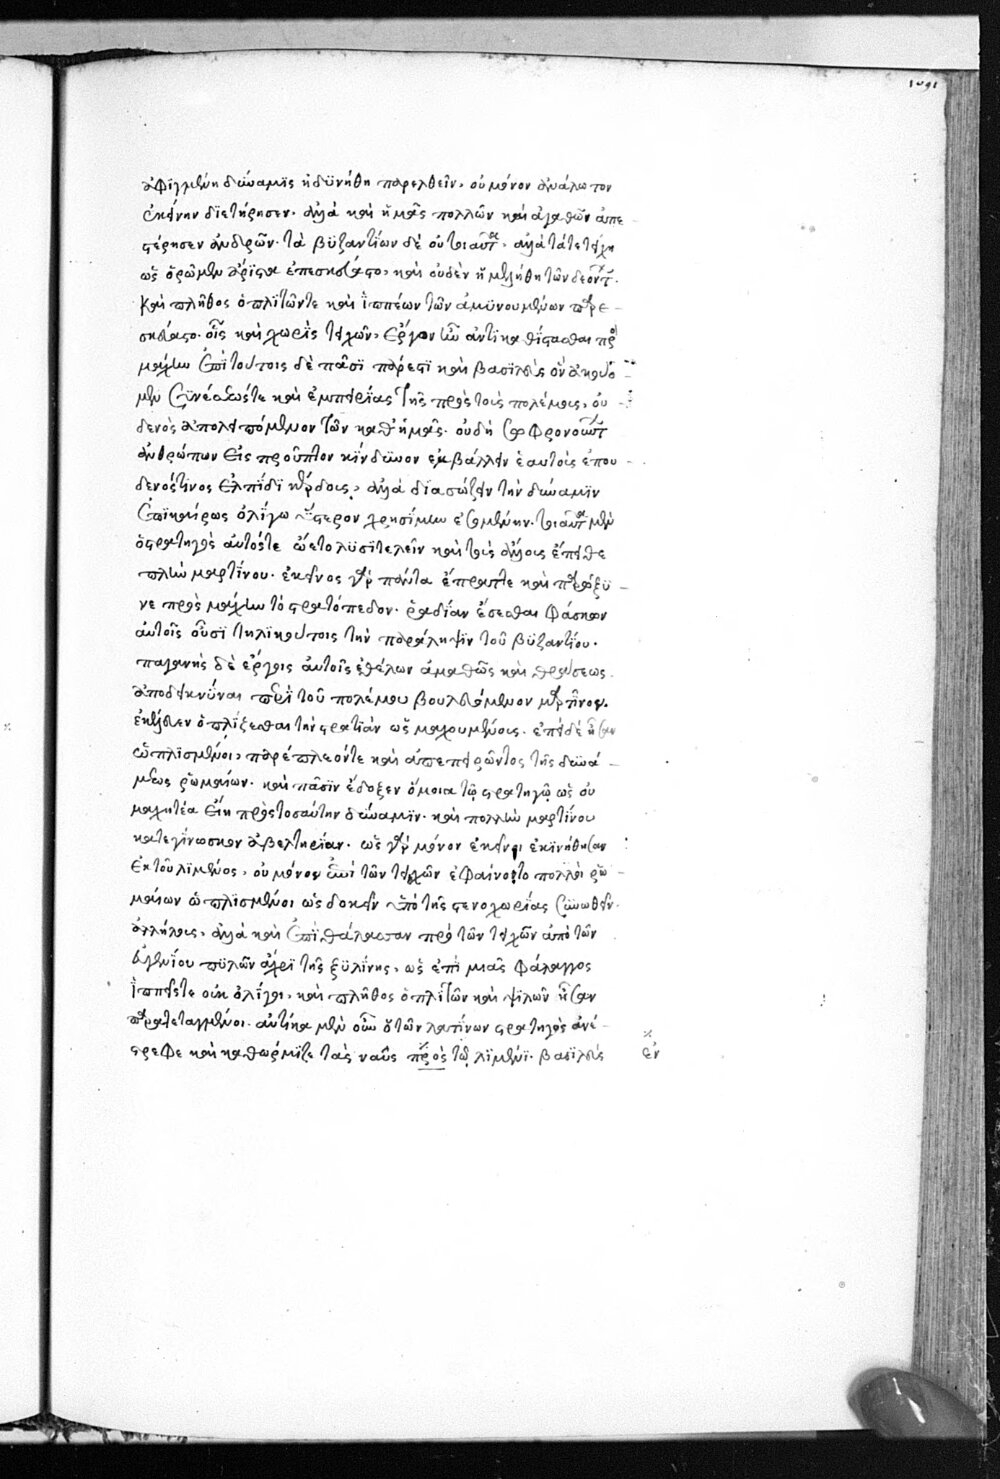 ἀφιγμένη δύναμϊς ἠδϋνήθη παρελθεῖν, οὐ μόνον ἀνάλωτον
ἐκείνην δϊετήρησεν. ἀλλὰ καὶ ἡμᾶς πολλῶν καὶ ἀγαθῶν ἀπε-
στέρησεν ἀνδρῶν. τὰ βϋζαντίων δὲ οὐ τοιαῦτα, ἀλλὰ τά τε τείχη
ὡς ὁρῶμεν ἄρϊστα ἐπεσκεύασται, καὶ οὐδὲν ἠμελήθη τῶν δεόντων.
καὶ πλῆθος ὁπλϊτῶν τε καὶ ἱππέων τῶν ἀμϋνουμένων παρε-
σκεύασται. οἷς καὶ χωρὶς τειχῶν, ἔργον ἦν ἀντϊκαθίστασθαι πρὸς
μάχην. ἐπὶ τούτοις δὲ πᾶσϊ πάρεστϊ καὶ βασϊλεὺς ὃν ἀκούο-
μεν συνέσεώς τε καὶ ἐμπειρίας τῆς πρὸς τοὺς πολέμους, οὐ
δενὸς ἀπολειπόμενον τῶν καθ' ἡμᾶς. οὐ δὴ σωφρονούντων
ἀνθρώπων εἰς προὖπτον κίνδϋνον ἐμβάλλειν ἑαυτοὺς ἐπ' οὐ-
δενός τινος ἐλπίδϊ κέρδους, ἀλλὰ διασώζειν τὴν δύναμϊν
ἐπϊκαίρως ὀλίγω ὕστερον χρησίμην ἐσομένην. τοιαῦτα μὲν
ὁ στρατηγὸς αὐτός τε ᾤετο λϋσϊτελεῖν καὶ τοὺς ἄλλους ἔπειθε
πλὴν μαρτίνου. ἐκεῖνος γὰρ πάντα ἔπραττε καὶ παρώξϋ-
νε πρὸς μάχην τὸ στρατόπεδον. ῥαδίαν ἔσεσθαι φάσκων
αὐτοῖς οὖσϊ τηλϊκούτοις τὴν παράληψϊν τοῦ βϋζαντίου.
παγανὴς δὲ ἔργοις αὐτοῖς ἐθέλων ἀμαθῶς καὶ θρασέως
ἀποδεικνύναι περὶ τοῦ πολέμου βουλευόμενον μαρτῖνον.
ἐκέλευσεν ὁπλίζεσθαι τὴν στρατϊὰν ὡς μαχουμένους. ἐπεὶ δὲ ἦσαν
ὡπλϊσμένοι, παρέπλεόν τε καὶ ἀπεπειρῶντο τῆς δϋνά-
μεως ῥωμαίων. καὶ πᾶσϊν ἔδοξεν ὅμοια τῷ στρατηγῷ ὡς οὐ
μαχητέα εἴη πρὸς τοσαύτην δύναμϊν. καὶ πολλὴν μαρτίνου
κατεγίνωσκον ἀβελτηρίαν. ὡς γὰρ μόνον ἐκεῖνοι ἐκϊνήθησαν
ἐκ τοῦ λϊμένος, οὐ μόνον ἐπὶ τῶν τειχῶν ἐφαίνοντο πολλοὶ ῥω-
μαίων ὡπλϊσμένοι ὡς δοκεῖν ὑπὸ τῆς στενοχωρίας συνωθεῖν
ἀλλήλους, ἀλλὰ καὶ ἐπὶ θάλασσαν πρὸ τῶν τειχῶν ἀπὸ τῶν
εὐγενίου πϋλῶν ἄχρϊ τῆς ξϋλίνης, ὡς ἐπὶ μιᾶς φάλαγγος
ἱππεῖς τε οὐκ ὀλίγοι, καὶ πλῆθος ὁπλϊτῶν καὶ ψϊλῶν ἦσαν
παρατεταγμένοι. αὐτίκα μὲν οὖν ὁ τῶν λατίνων στρατηγὸς ἀνέ-
στρεφε καὶ καθώρμϊζε τὰς ναῦς πρὸς τῷ λϊμένϊ. βασϊλεὺς
ἐν